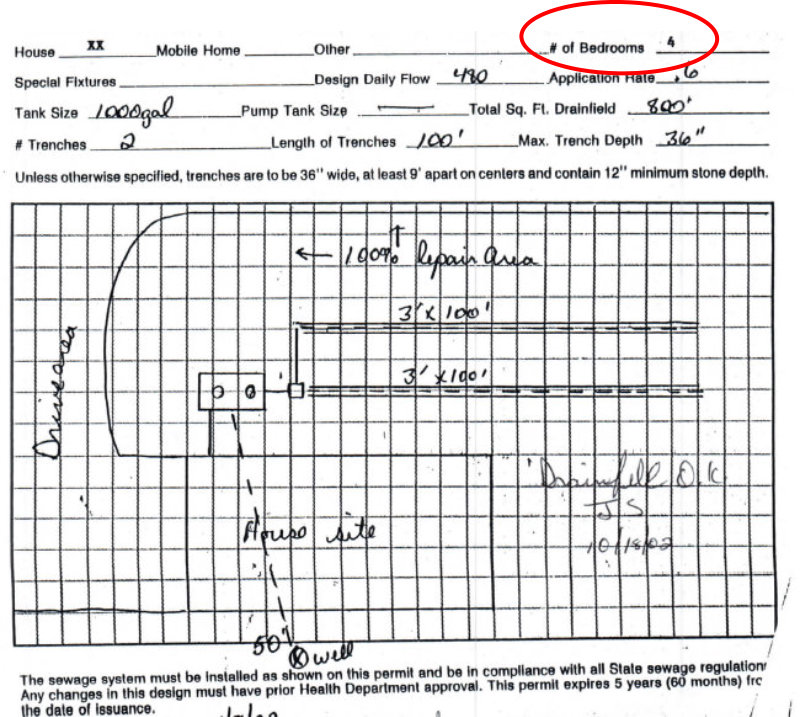 House XX Mobile Home Other # of Bedrooms 4
Special Fixtures Design Daily Flow 480 Application Rate .6
Tank Size 1000gal Pump Tank Size Total Sq. Ft. Drainfield 800'
# Trenches 2 Length of Trenches 100' Max. Trench Depth 36"
Unless otherwise specified, trenches are to be 36" wide, at least 9' apart on centers and contain 12" minimum stone depth.
← 100% repair area
3' x 100'
3' x 100'
Drive area
Drainfield O.K.
JS
10/18/02
House site
50'
well
The sewage system must be installed as shown on this permit and be in compliance with all State sewage regulation
Any changes in this design must have prior Health Department approval. This permit expires 5 years (60 months) frc
the date of issuance.